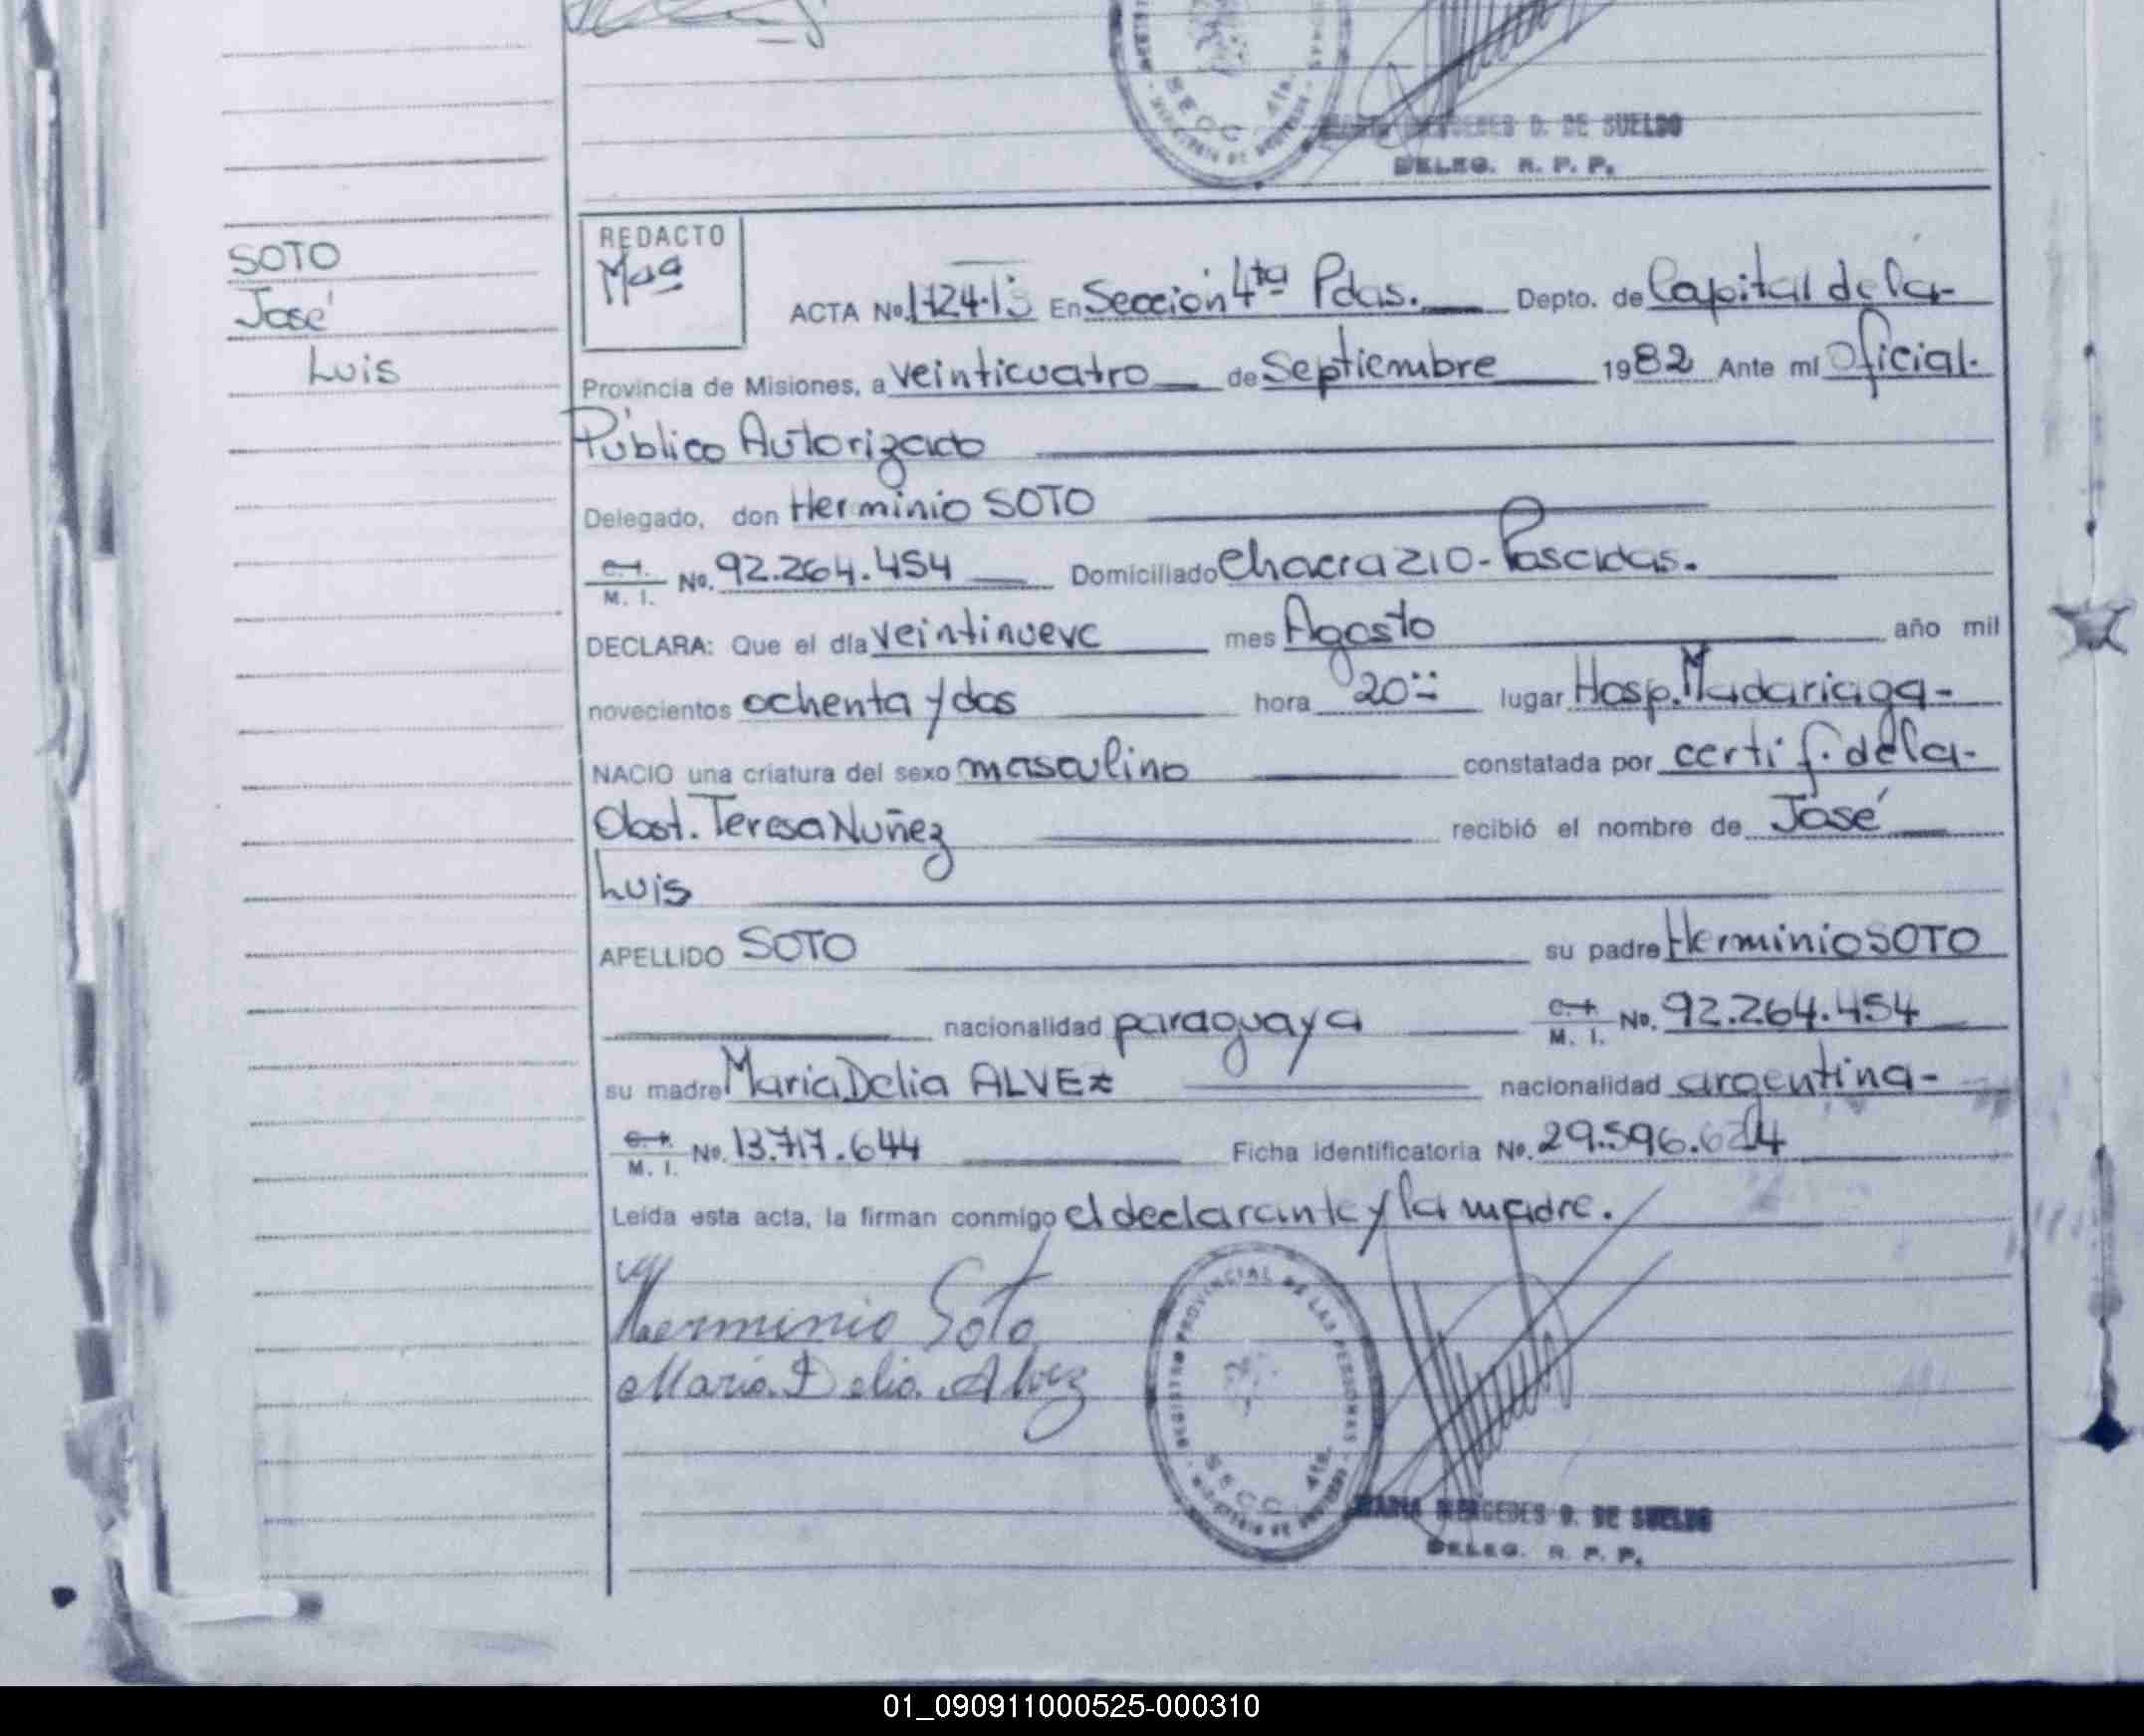 MARIA MERCEDES D. DE SUELDO
DELEG. R. P. P.
SOTO
José
Luis
REDACTO
Mªª
ACTA No. En Sección 4ta Pdas. Depto. de Capital de la-
Provincia de Misiones, a veinticuatro de Septiembre 1982 Ante mí Oficial.
Público Autorizado
Delegado, don Herminio SOTO
C.I. M. I. No. 92.264.454 Domiciliado Chacra 210-Poscidas.
DECLARA: Que el día veintinueve mes Agosto año mil
novecientos ochenta y dos hora 20:- lugar Hosp. Madariaga-
NACIO una criatura del sexo masculino constatada por certif. de la-
Obst. Teresa Nuñez recibió el nombre de José
Luis
APELLIDO SOTO su padre Herminio SOTO
nacionalidad paraguaya C.I. M. I. No. 92.264.454
su madre Maria Delia ALVEZ nacionalidad argentina-
C.I. M. I. No. 13.717.644 Ficha identificatoria No. 29.596.
Leída esta acta, la firman conmigo el declarante y la madre.
Herminio Soto
Maria Delia Alvez
REGISTRO PROVINCIAL DE LAS PERSONAS
SECC. 4ta.
MARIA MERCEDES D. DE SUELDO
DELEG. R. P. P.
01_090911000525-000310